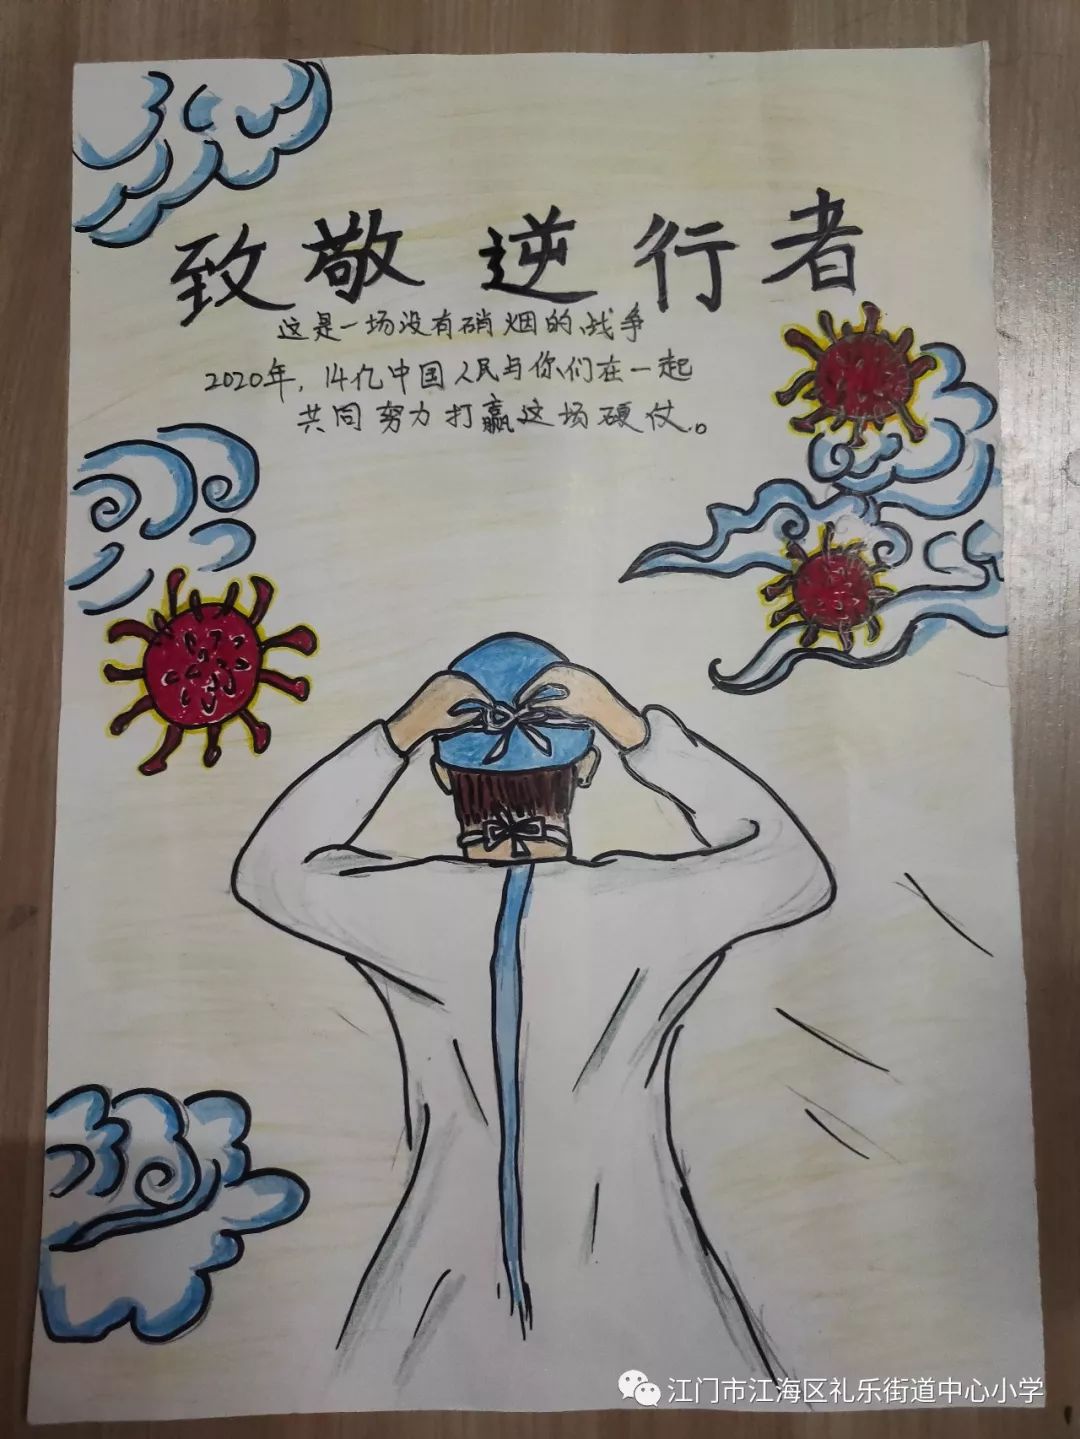 致敬逆行者
这是一场没有硝烟的战争
2020年，14亿中国人民与你们在一起
共同努力打赢这场硬仗。
江门市江海区礼乐街道中心小学